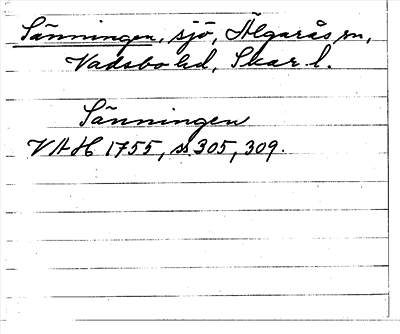 Sänningen, sjö, Älgarås sn,
Vadsbo hd, Skar. l.
Sänningen
VAH 1755, ss. 305, 309.